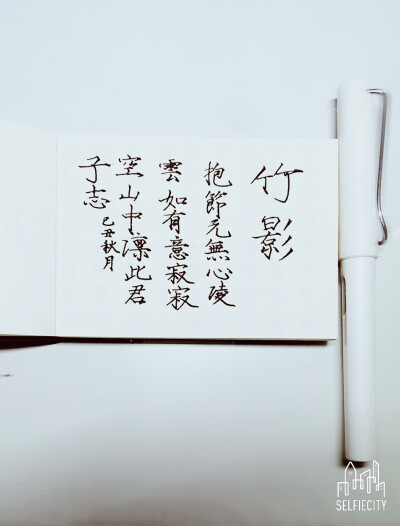 竹影
抱節元無心凌
雲如有意寂寂
空山中凛此君
子志
己丑秋月
SELFIECITY